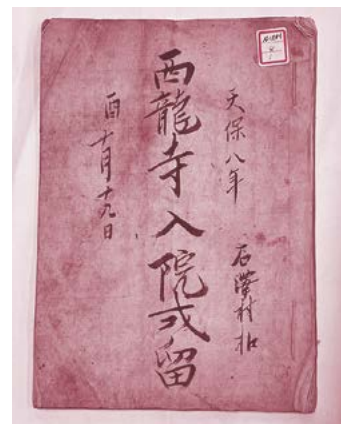 天保八年 石澤村扣
西龍寺入院式留
酉十月十九日